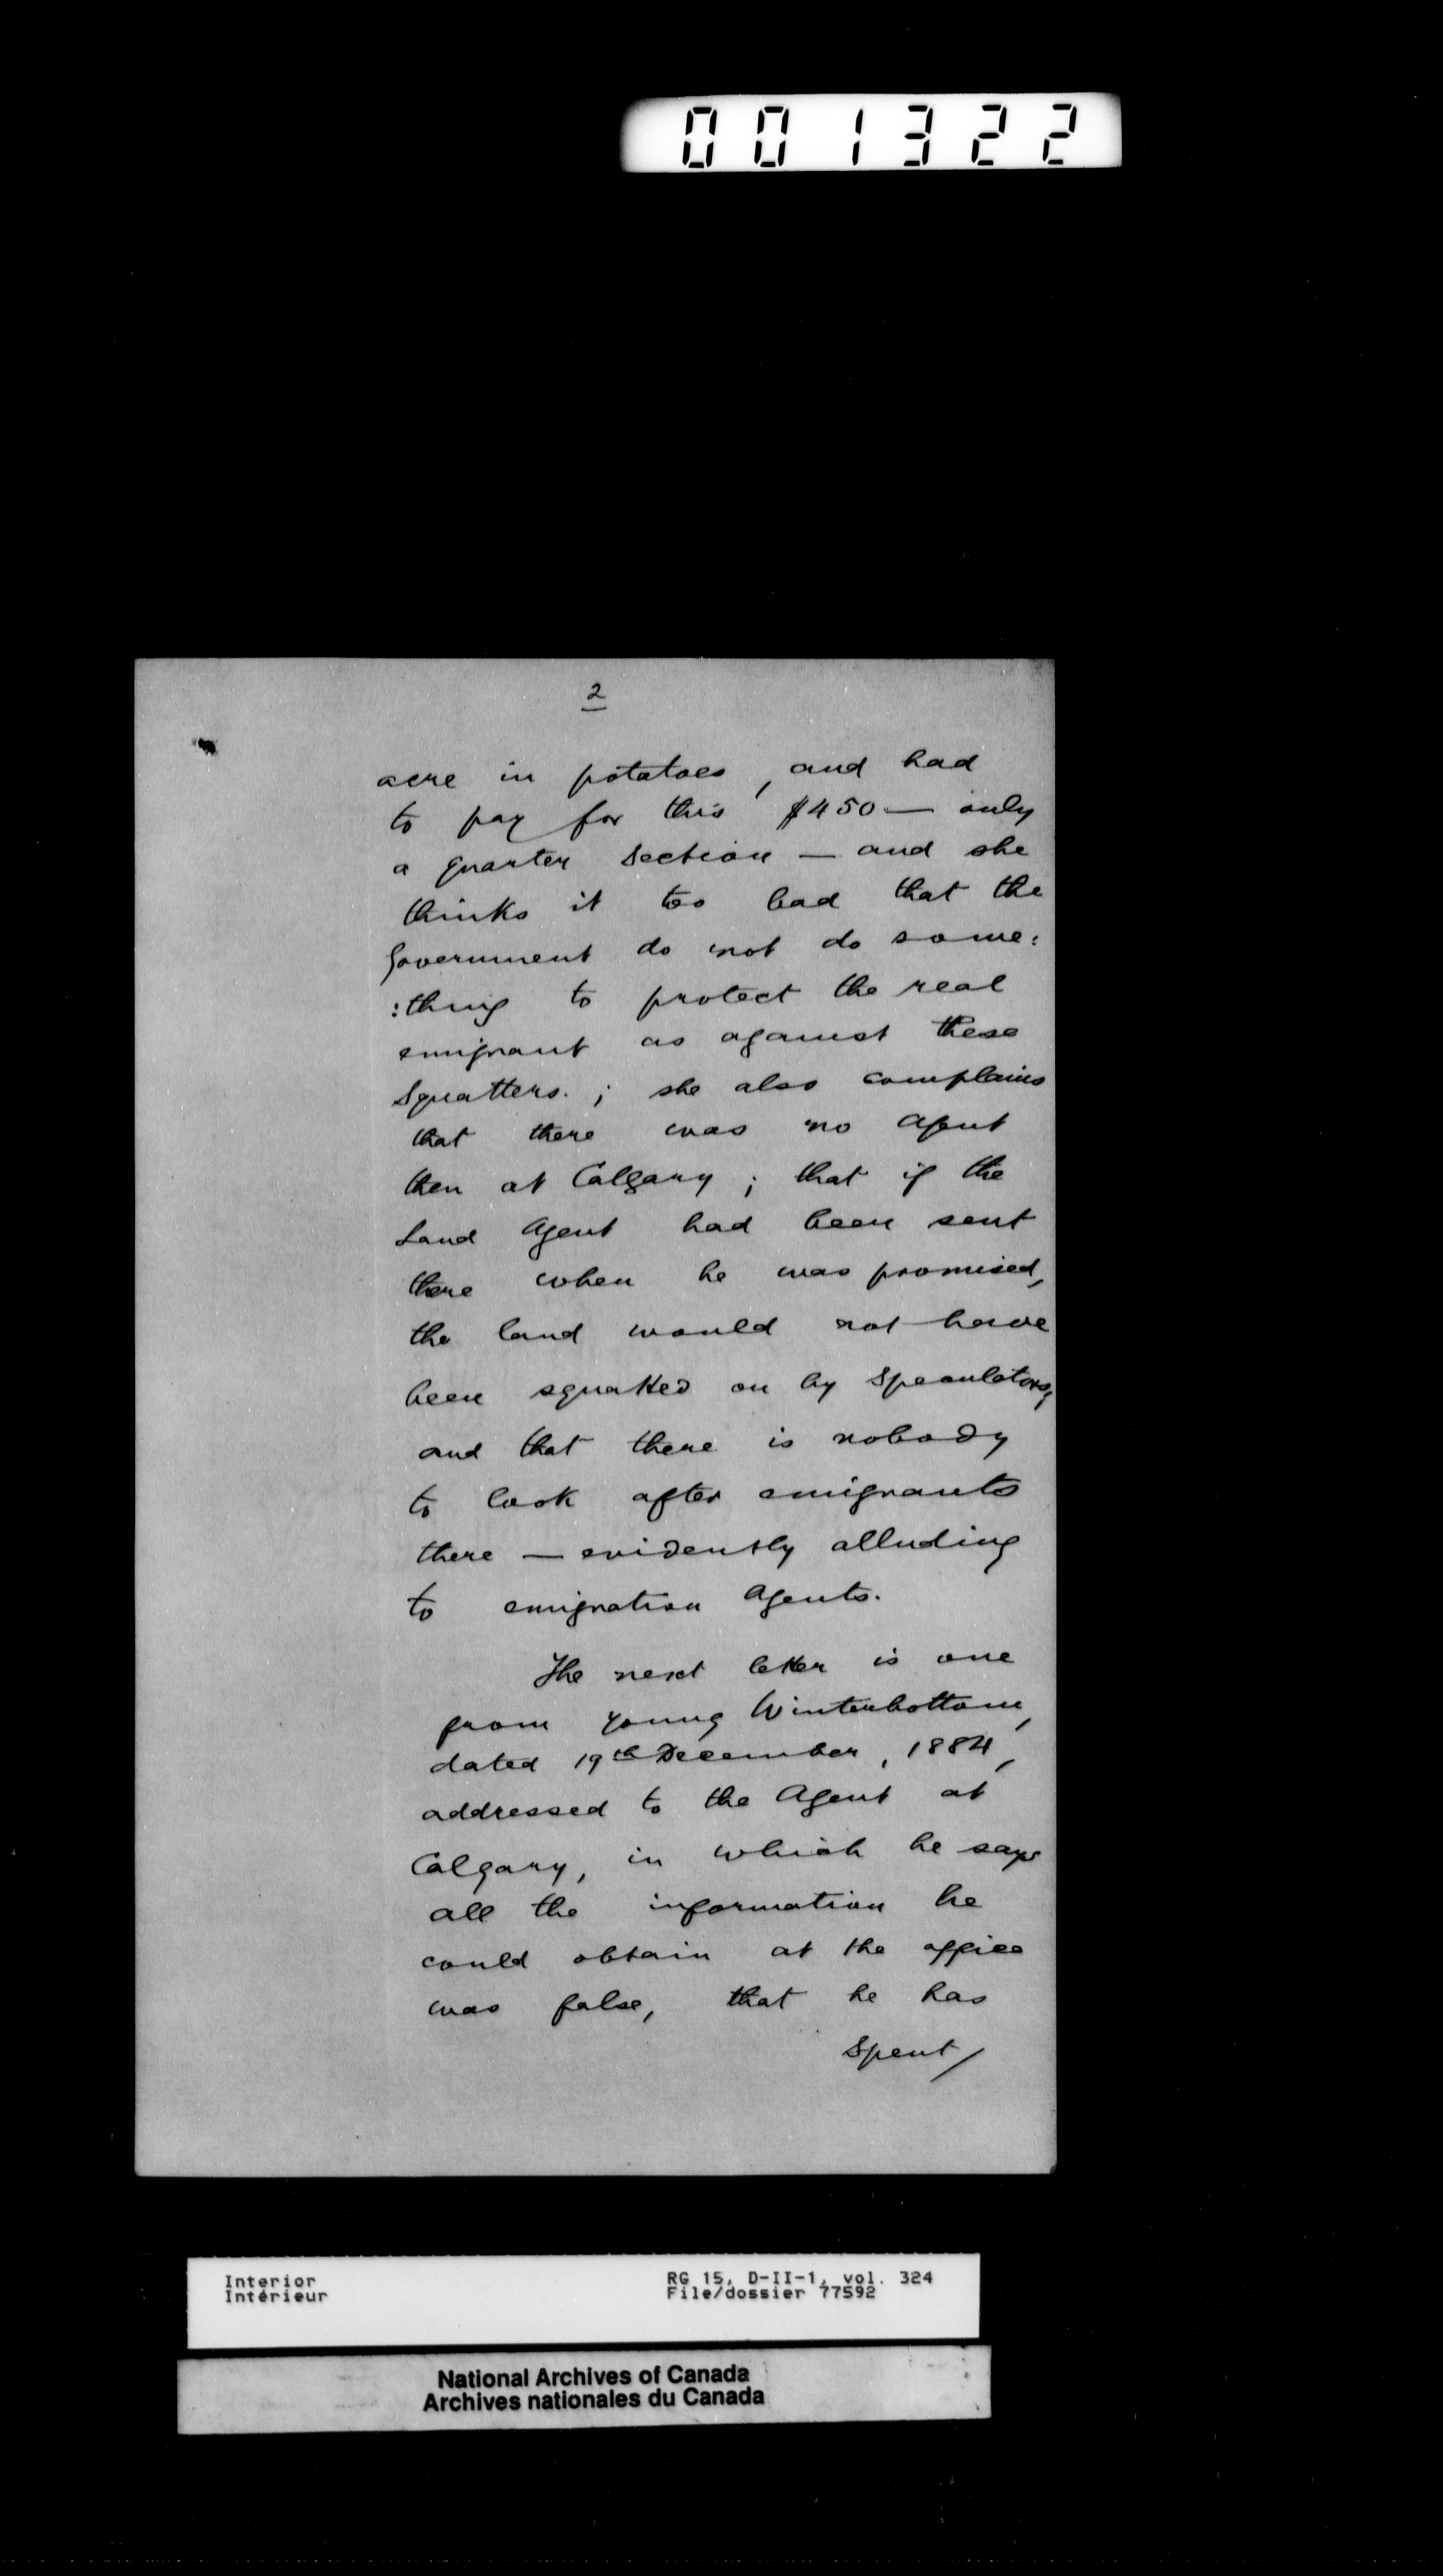 001322
2
acre in potatoes, and had
to pay for this $450 — only
a quarter section — and she
thinks it too bad that the
Government do not do some:
:thing to protect the real
emigrant as against these
Squatters. ; she also complains
that there was no Agent
then at Calgary ; that if the
Land Agent had been sent
there when he was promised,
the land would not have
been squatted on by Speculators,
and that there is nobody
to look after emigrants
there — evidently alluding
to emigration Agents.
The next letter is one
from young Winterbottom,
dated 19th December, 1884,
addressed to the Agent at
Calgary, in which he says
all the information he
could obtain at the office
was false, that he has
Spent/
Interior RG 15, D-II-1, vol. 324
Intérieur File/dossier 77592
National Archives of Canada
Archives nationales du Canada